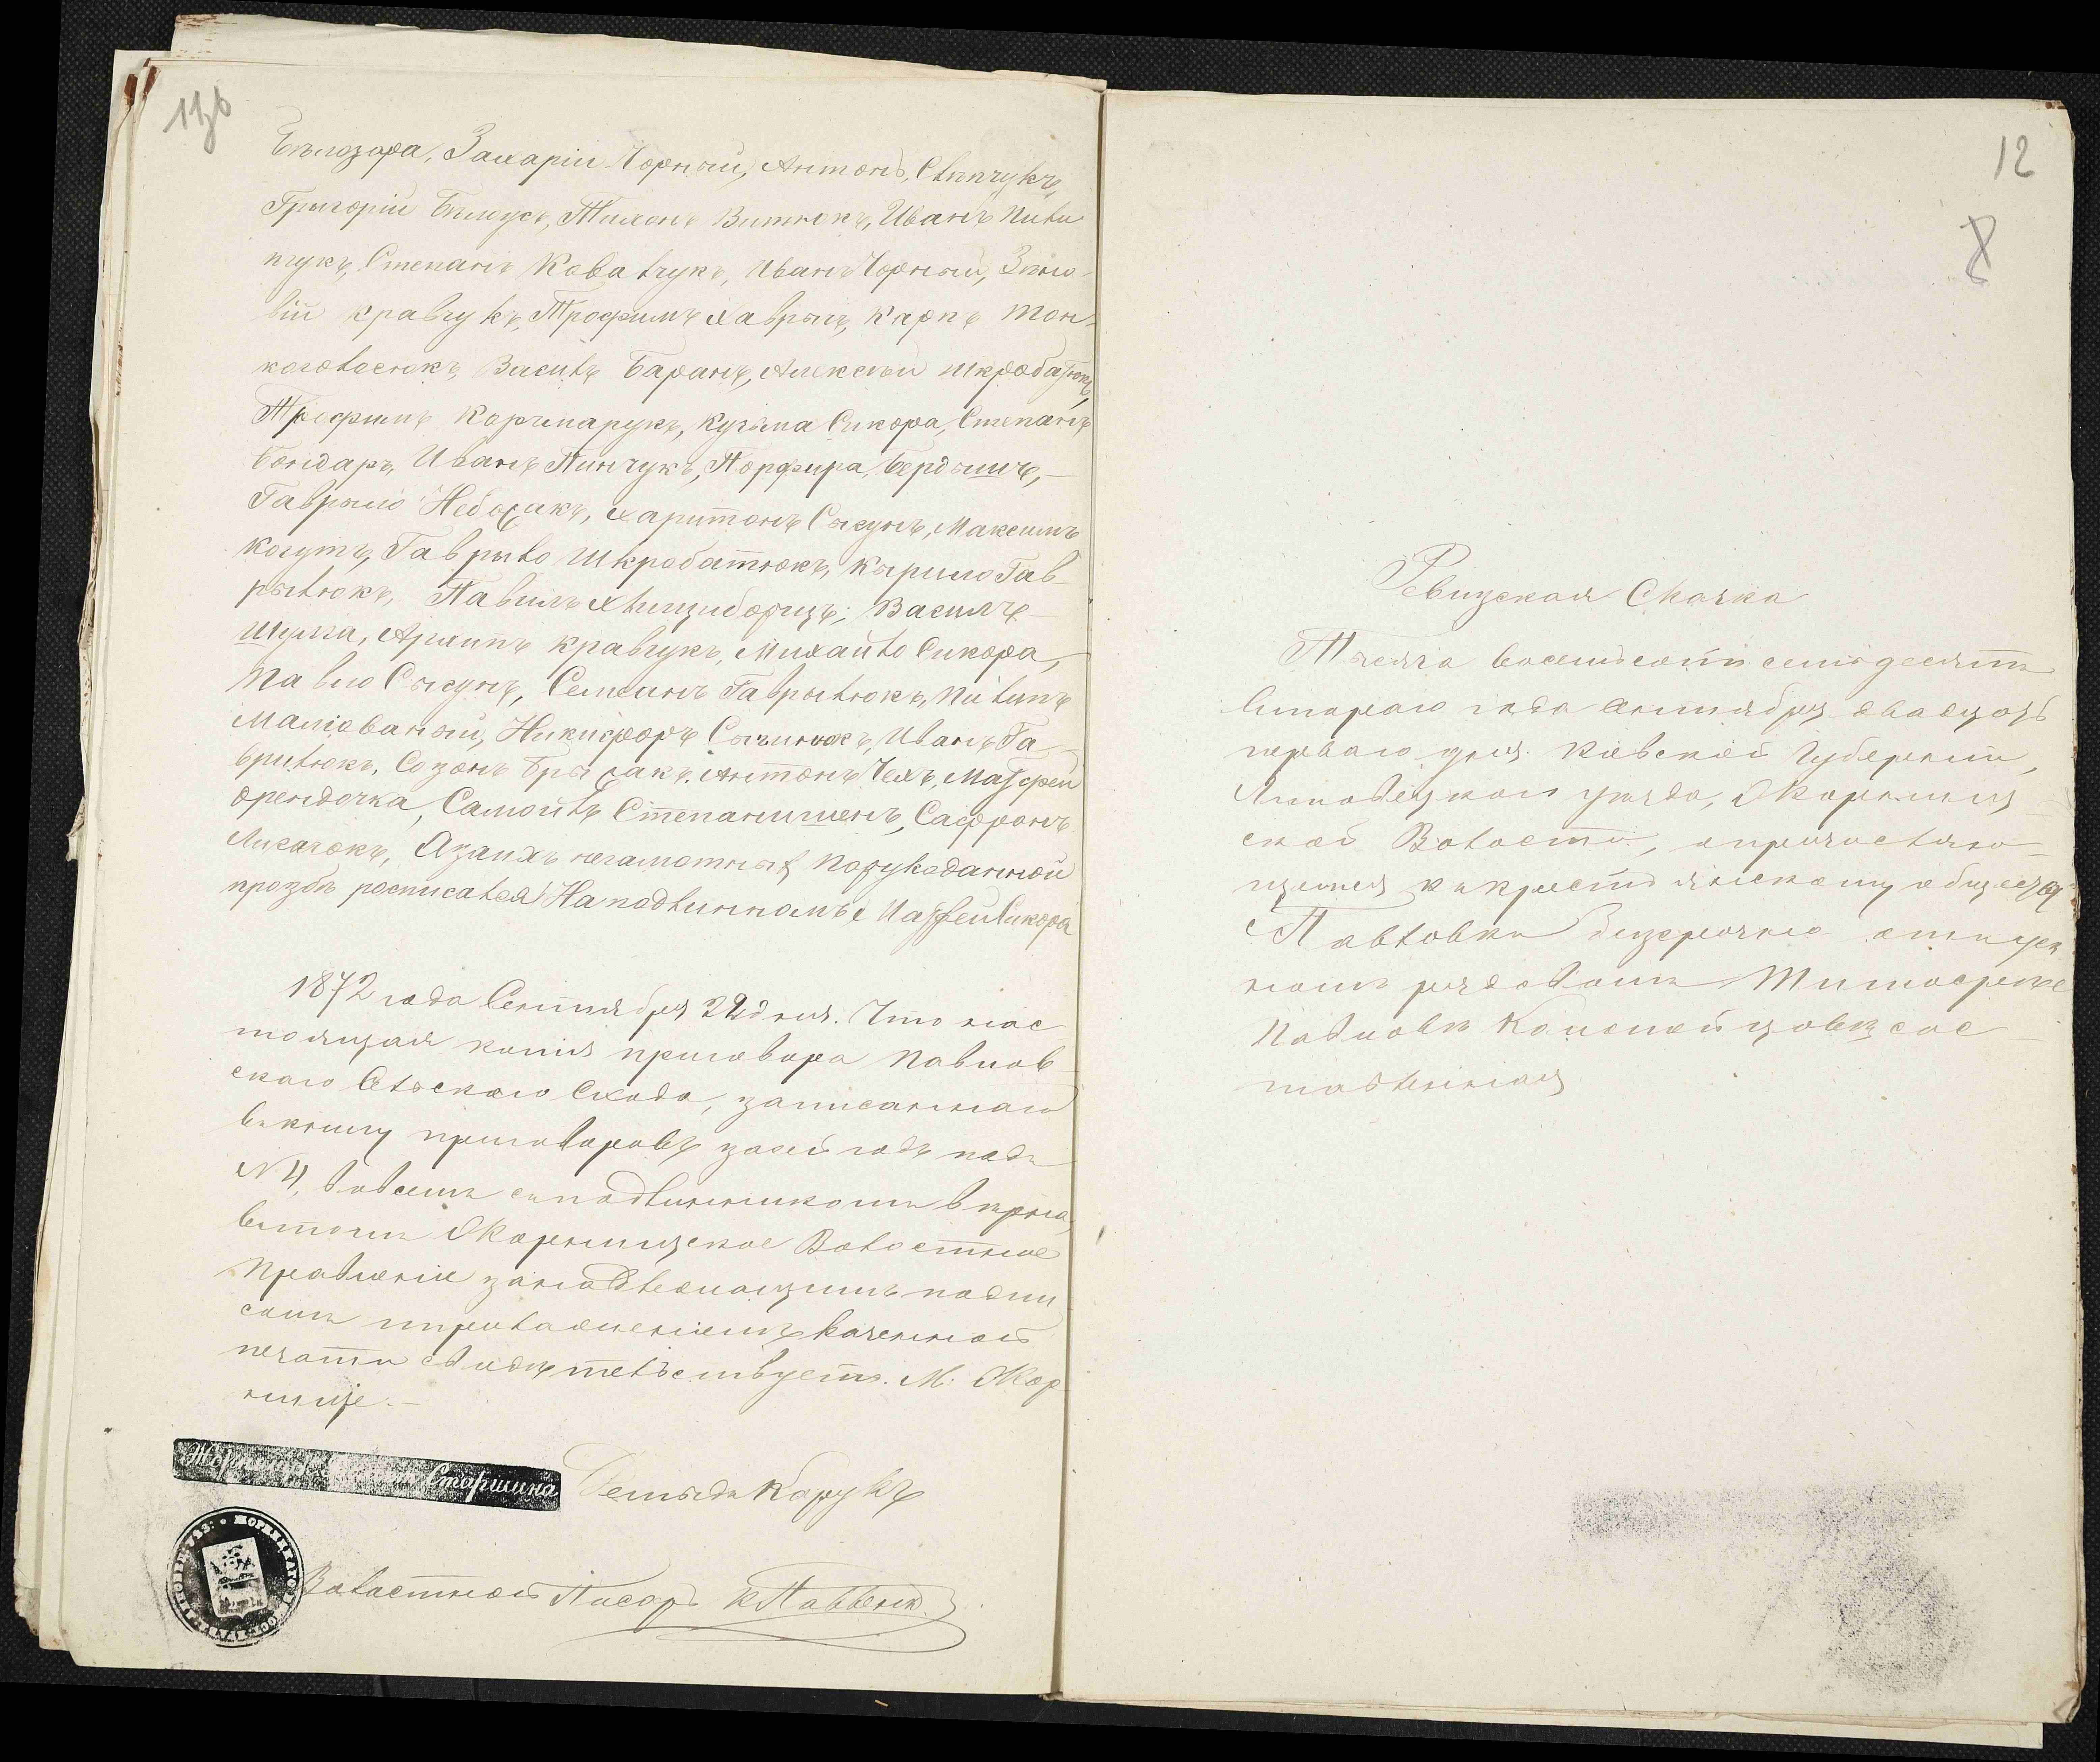 11об
Бѣлозора, Захарій Чорный, Антонъ Свѣпчукъ,
Григорій Бѣлоусъ, Тихонъ Витюкъ, Иванъ Пили
пчукъ, Степанъ Ковальчукъ, Иванъ Чорный, Зѣно-
вій Кравчукъ, Трофимъ Хаврыгъ, Карпъ Тон-
коголосюкъ, Василь Баранъ, Алексѣй Шкробатюкъ,
Трофимъ Корчмарукъ, Кузьма Сикора, Степанъ
Бондаръ, Иванъ Пинчукъ, Порфира Бердышъ,—
Гаврыло Небожакъ, Харитонъ Сысунъ, Максимъ
Когутъ, Гаврыло Шкробатюкъ, Кырило Гав-
рылюкъ, Павелъ Василь
Шулга, Архипъ Кравчукъ, Михайло Сикора,
Павло Сысунъ, Семенъ Гаврылюкъ, Пилипъ
Малёваный, Никифоръ Иванъ Га-
врилюкъ, Созонъ Антонъ Чехъ, Матфей
Орендочка, Самойлъ Степанишенъ, Сафронъ
Лисачокъ, А за ихъ неграмотныхъ по рукоданной
прозбѣ росписался На подлинномъ Матфей Сикора
1872 года Сентября 22 дня. Что нас-
тоящая копія приговора Павлов-
скаго Сельскаго Схода, записаннаго
въ книгу приговоровъ за сей годъ подъ
№ 4, во всемъ съ подлинникомъ вѣрна,
въ томъ Жорнищское Волостное
Правленіе за надлежащимъ подпи
сомъ и приложеніемъ казенной
печати свидѣтельствуетъ. М. Жор-
нище.—
Жорнищскій Волостной Старшина Демыдъ Карукъ
Волостной Писарь К Павленк
12
8
Ревизская Сказка
Тысяча восемьсотъ семьдесятъ
втораго года Сентября двадцать
перваго дня. Кіевской Губерніи,
Липовецкаго уѣзда, Жорнищ-
ской Волости, о причисляю-
щемся къ крестьянскому обществу
Павловки безсрочно отпуск
номъ рядовомъ Тимофеѣ
Павловѣ сос-
тавленная